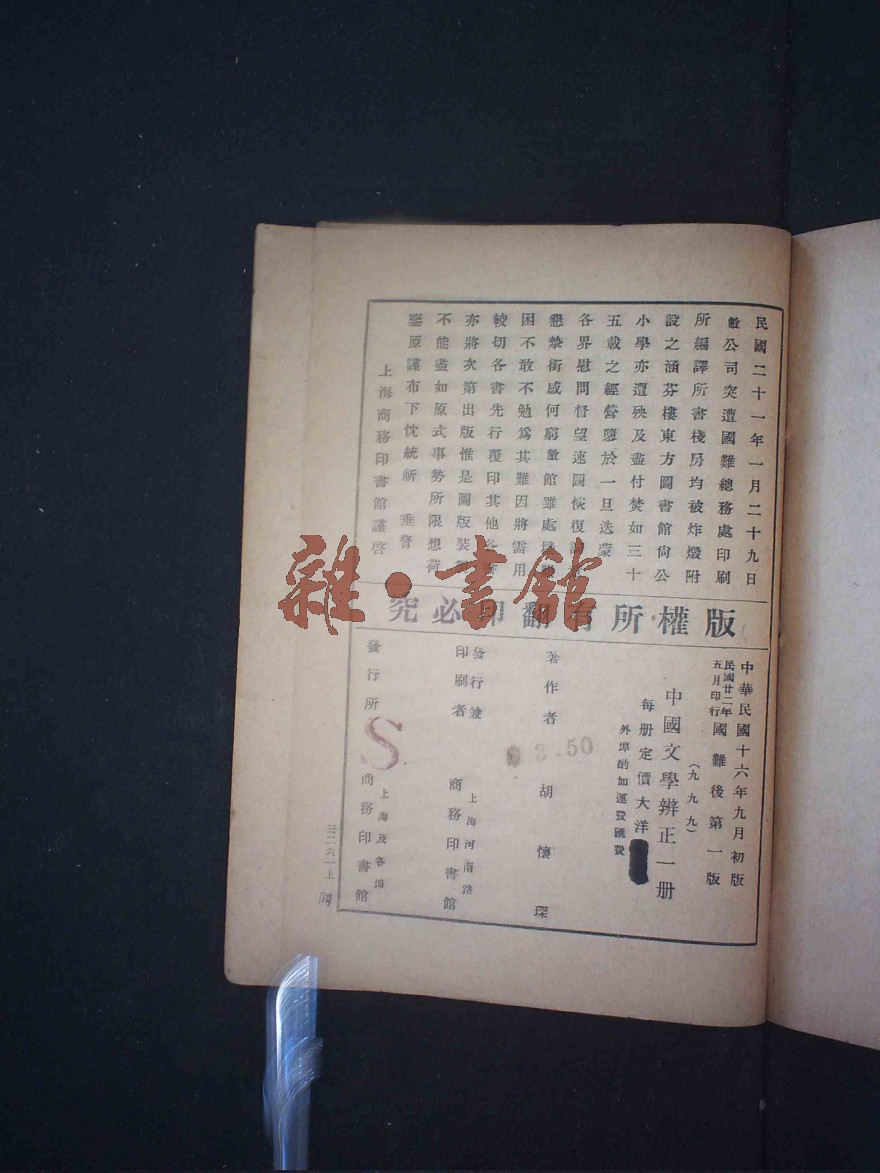 民國二十一年一月二十九日
敝公司突遭國難總務處印刷
所編譯所書棧房均被炸燬附
設之涵芬樓東方圖書館尙公
小學亦遭殃及盡付焚如三十
五載之經營隳於一旦迭蒙
各界慰問督望速圖恢復
懇摯銜感何窮敝館雖處
困不敢不勉爲其難因將需用
較切各書先行覆印其他各
亦將次第出版惟是圖版裝
不能盡如原式事勢所限想荷
鑒原謹布下忱統祈 垂詧
上海商務印書館謹啓
版權所有翻印必究
中華民國十六年九月初版
民國廿二年五月印行國難後第一版
(九九九)
中國文學辨正一册
每册定價大洋
外埠酌加運費匯費
3.50
著作者 胡懷琛
發行兼印刷者 上海河南路 商務印書館
發行所 上海及各埠 商務印書館
S
三二六一上
雜·書館